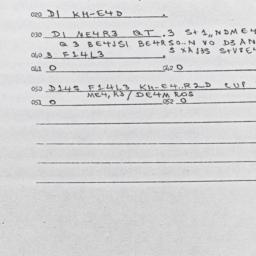 020 D1 KH-E4D .
030 D1 ME4R3 QT . 3 S+1,,NDME4
Q3 BE4JS1 BE4RS0..N VO D3AN
040 3 F14L3
041 0 042 0
050 D145 F14L3 KH-E4..R2D CUP
ME4, R3 / DE4M ROS
051 0 052 0